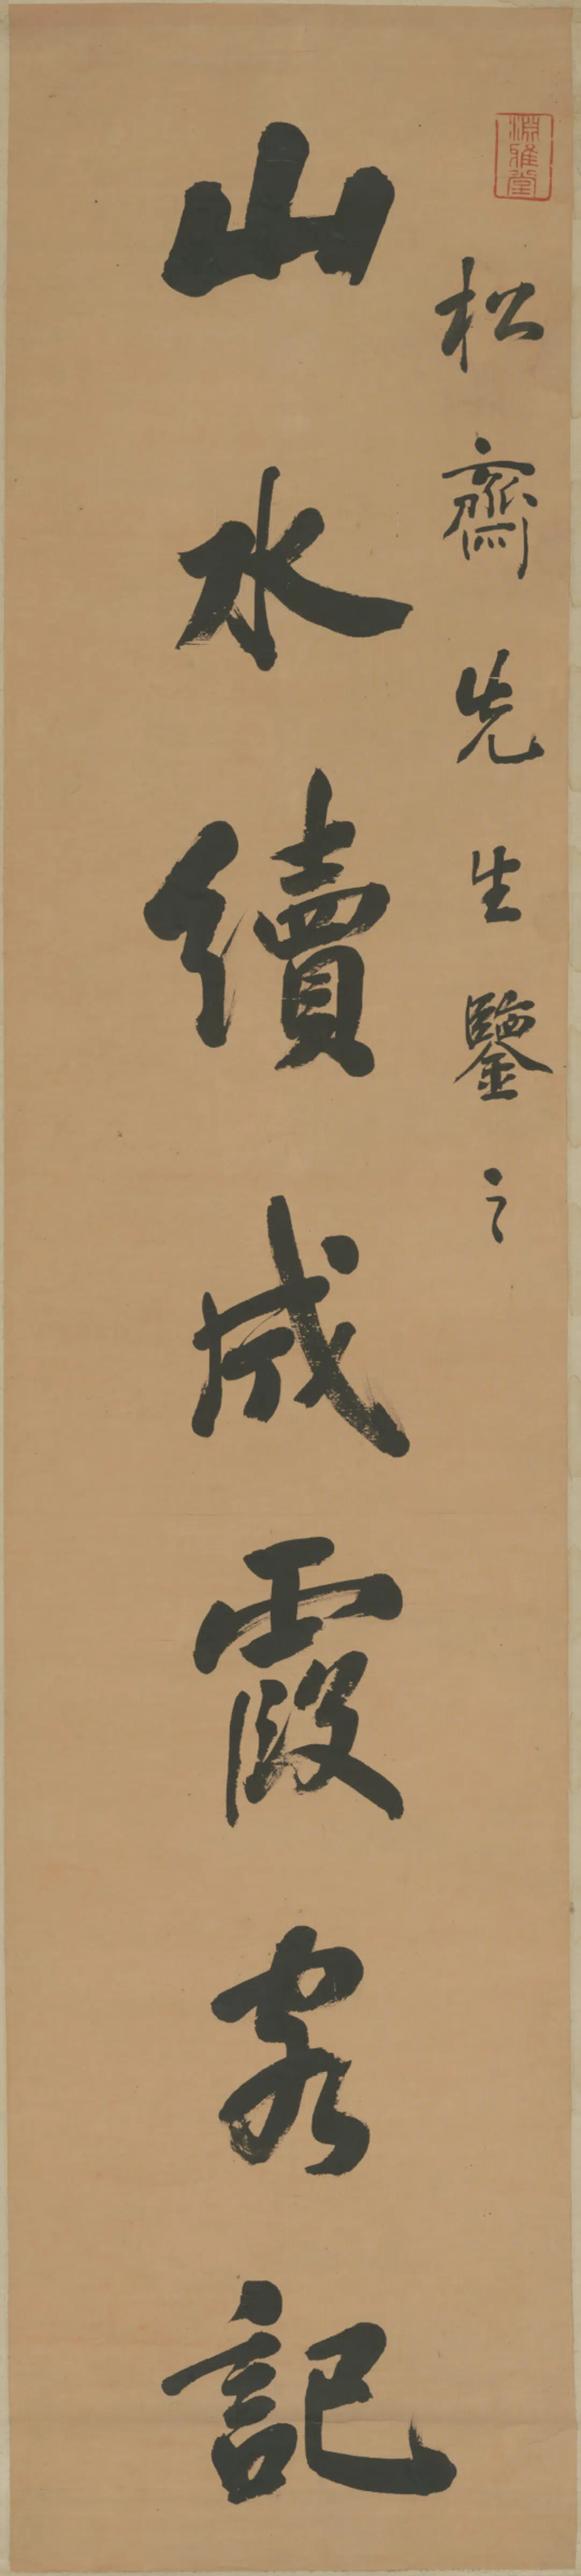 淵雅堂
松齋先生鑒之
山水續成霞客記